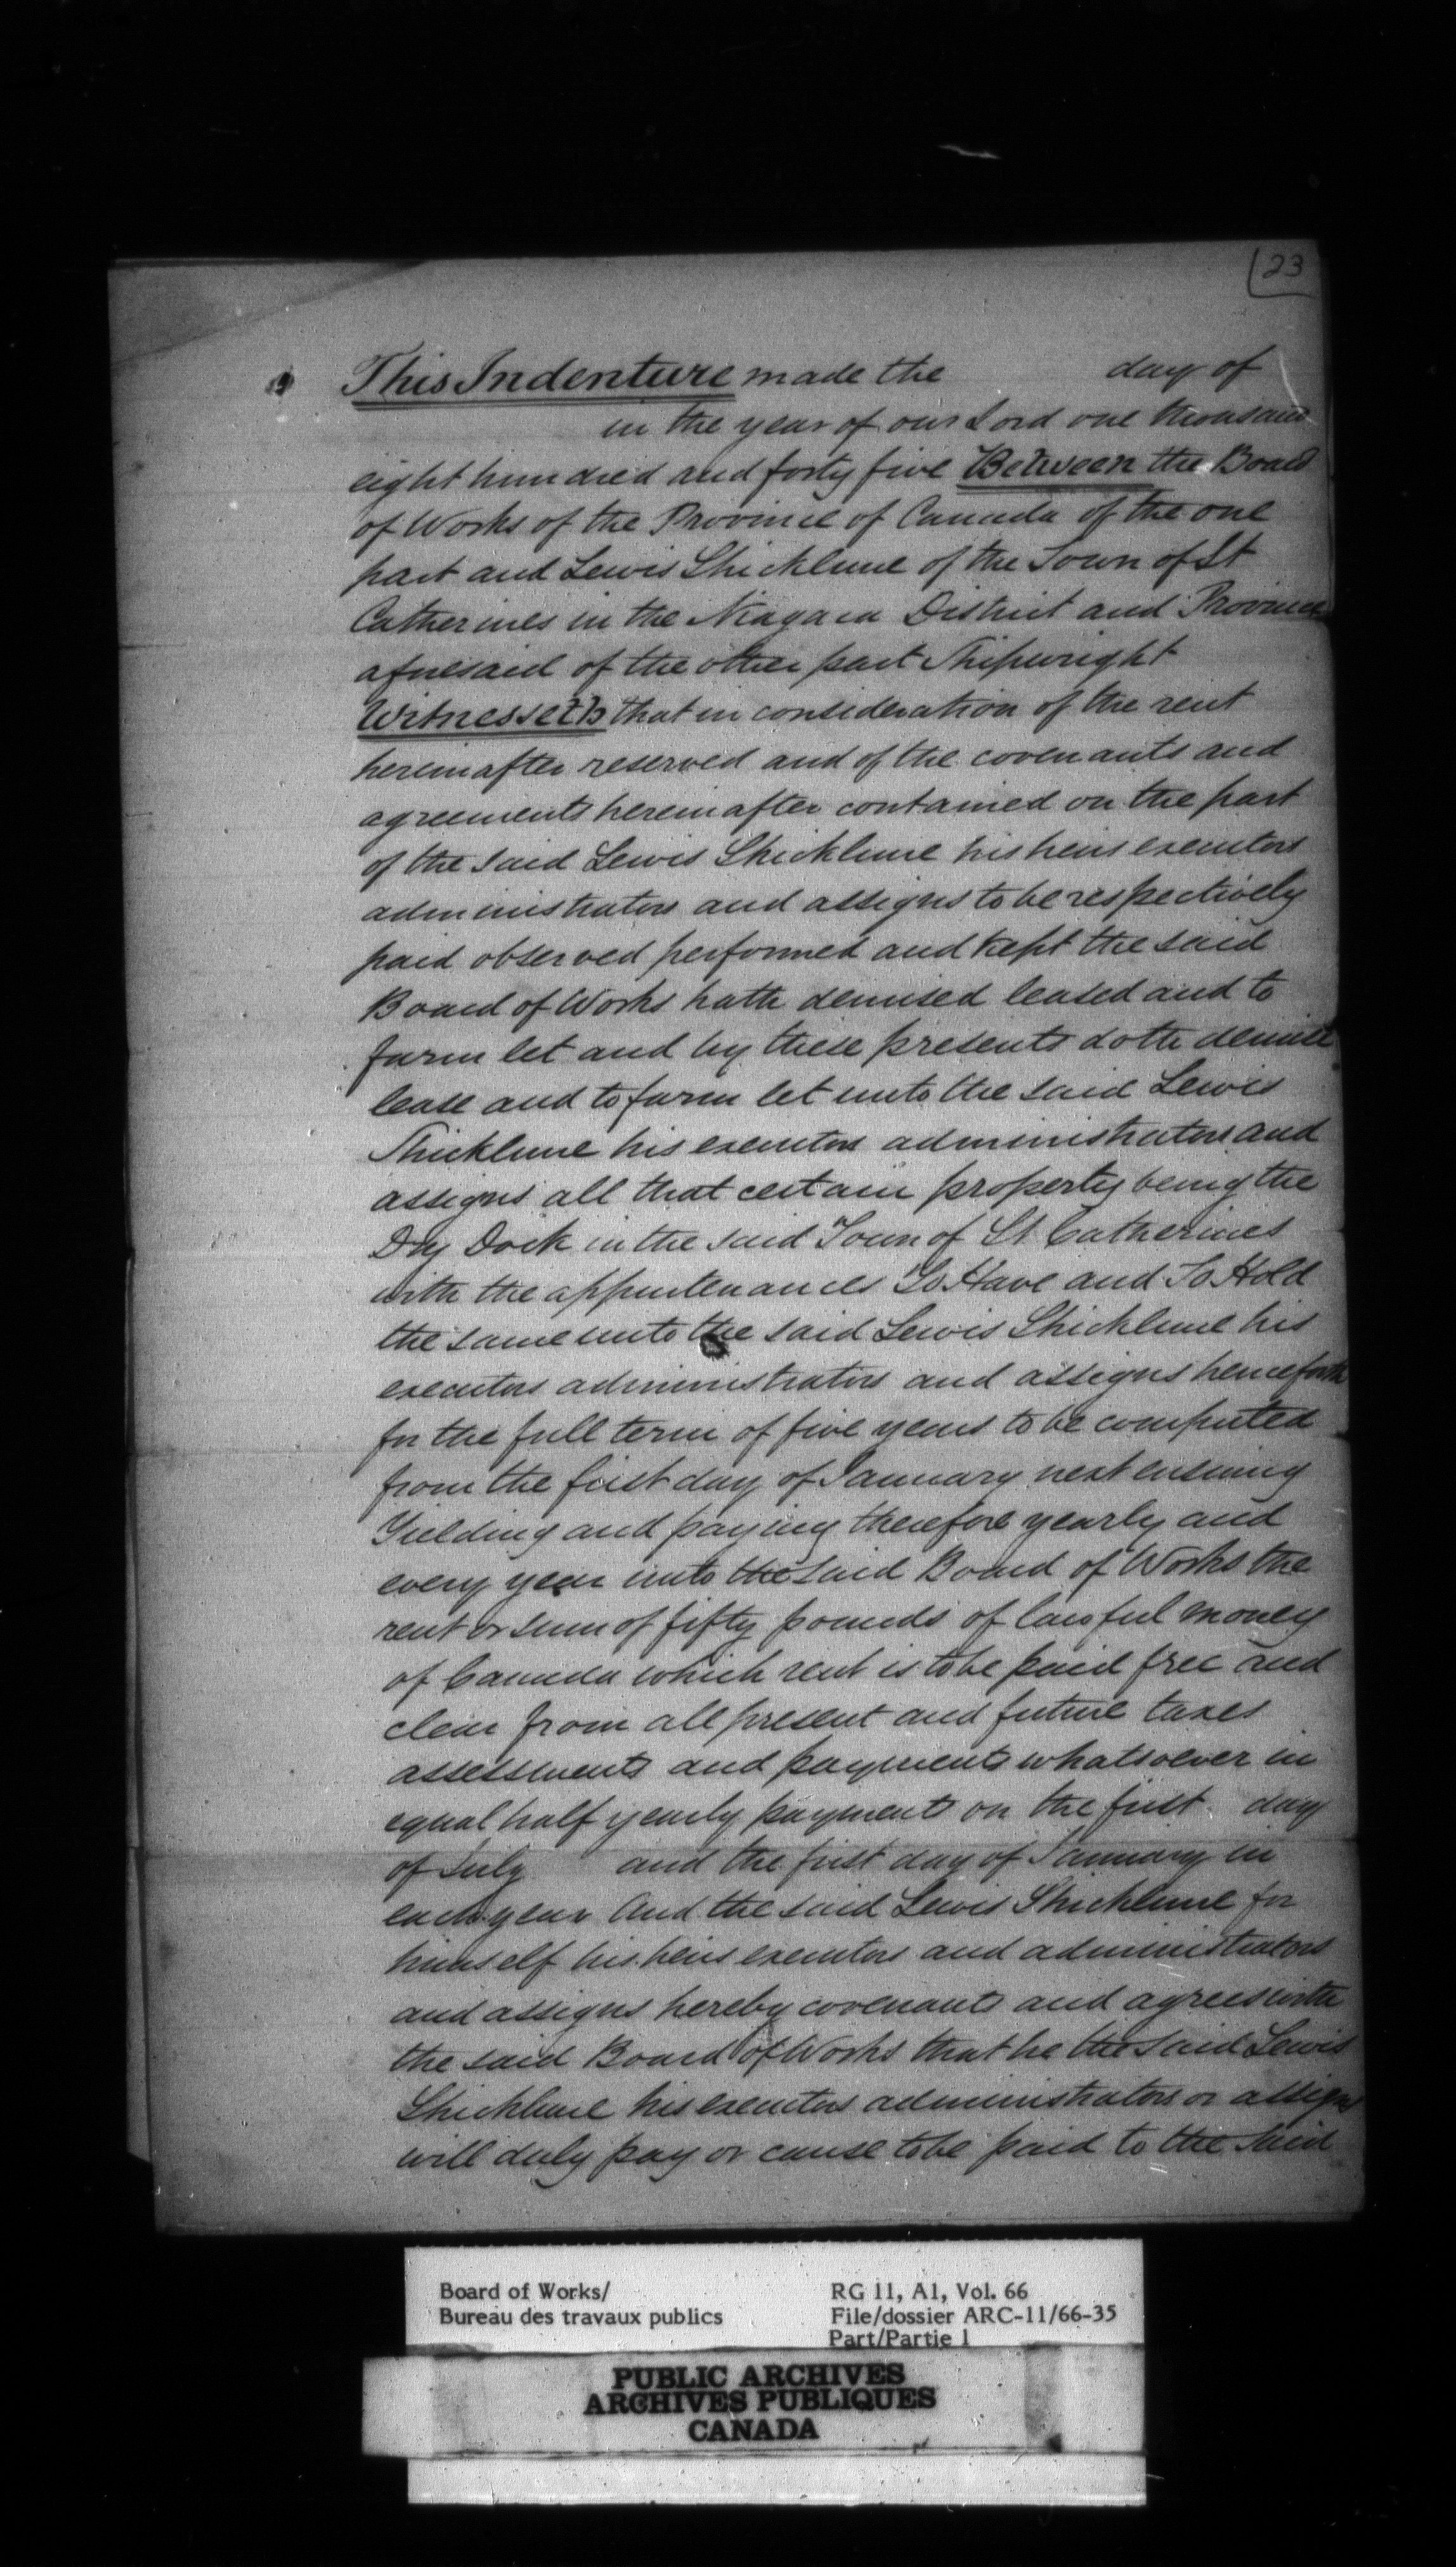 23
This Indenture made the day of
in the year of our Lord one thousand
eight hundred and forty five Between the Board
of Works of the Province of Canada of the one
part and Lewis Shicklune of the Town of St
Catherines in the Niagara District and Province
aforesaid of the other part Shipwright
Witnesseth that in consideration of the rent
hereinafter reserved and of the covenants and
agreements hereinafter contained on the part
of the said Lewis Shicklune his heirs executors
administrators and assigns to be respectively
paid observed performed and kept the said
Board of Works hath demised leased and to
farm let and by these presents doth demise
lease and to farm let unto the said Lewis
Shicklune his executors administrators and
assigns all that certain property being the
Dry Dock in the said Town of St Catherines
with the appurtenances To Have and To Hold
the same unto the said Lewis Shicklune his
executors administrators and assigns henceforth
for the full term of five years to be computed
from the first day of January next ensuing
Yielding and paying therefore yearly and
every year unto the said Board of Works the
rent or sum of fifty pounds of lawful money
of Canada which rent is to be paid free and
clear from all present and future taxes
assessments and payments whatsoever in
equal half yearly payments on the first day
of July and the first day of January in
each year And the said Lewis Shicklune for
himself his heirs executors and administrators
and assigns hereby covenants and agrees with
the said Board of Works that he the said Lewis
Shicklune his executors administrators or assigns
will duly pay or cause to be paid to the said
Board of Works/
Bureau des travaux publics
RG 11, A1, Vol. 66
File/dossier ARC-11/66-35
Part/Partie 1
PUBLIC ARCHIVES
ARCHIVES PUBLIQUES
CANADA